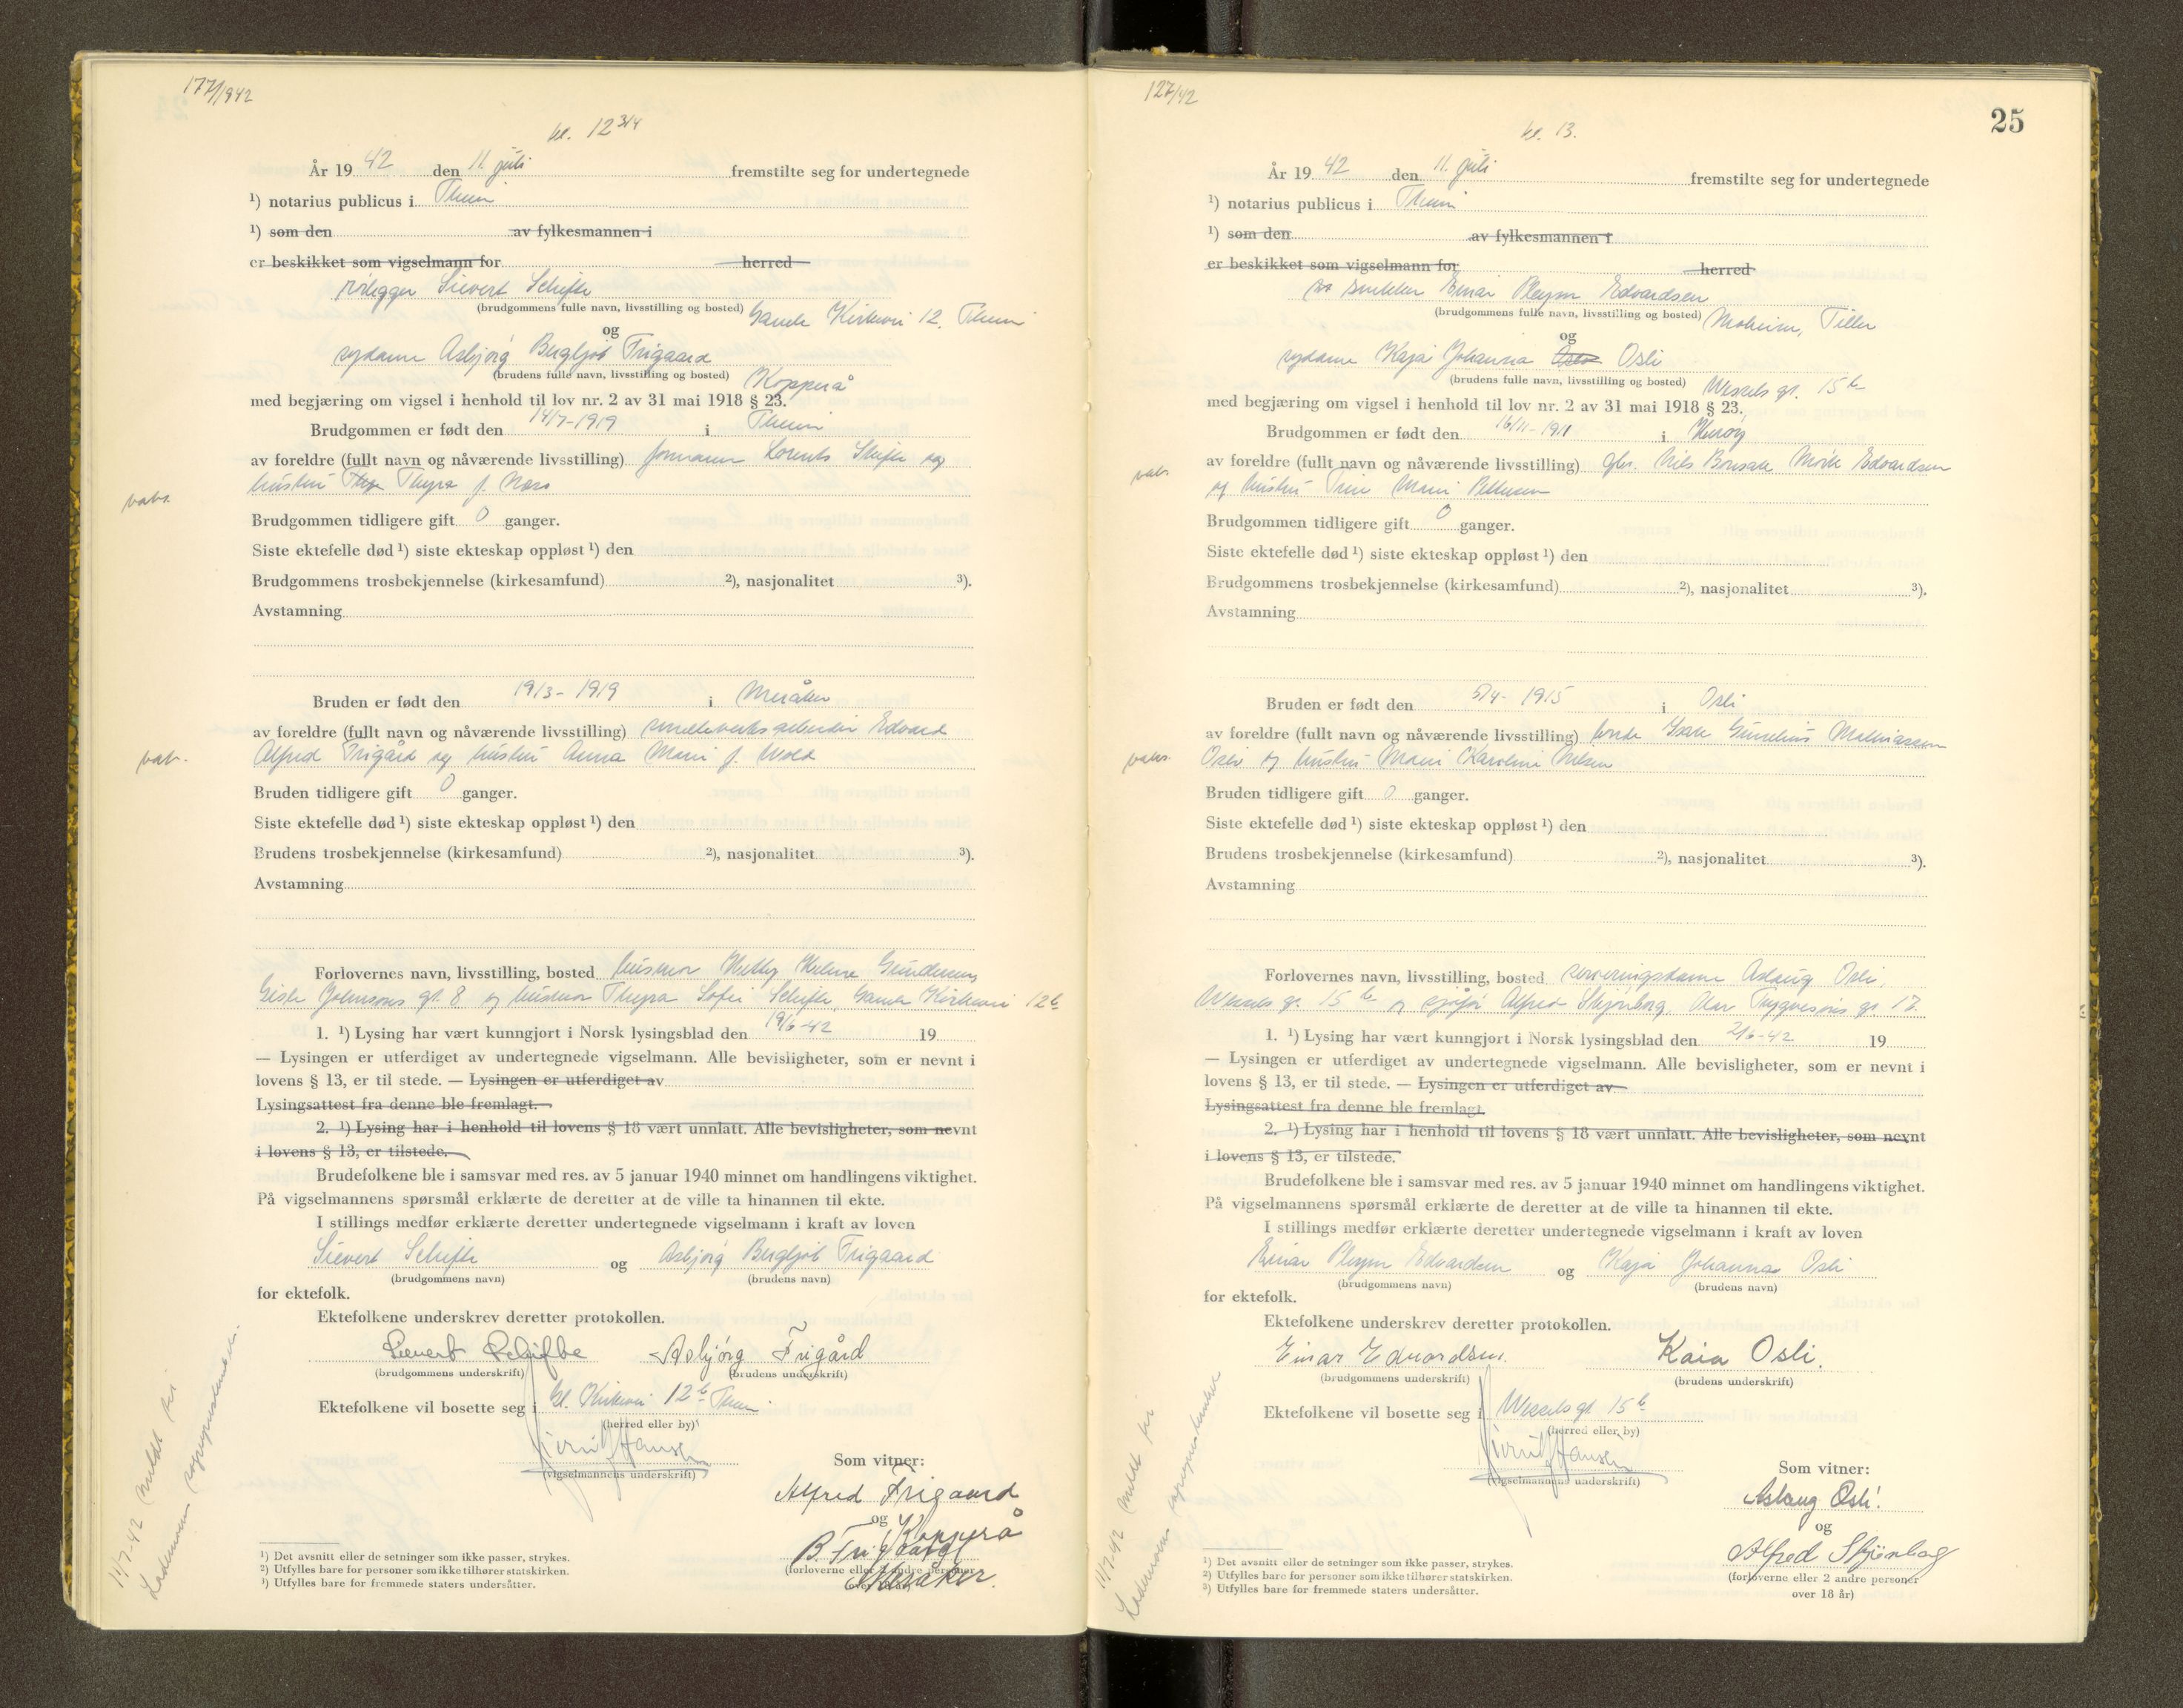 177/1942
kl. 12 3/4
År 19 42 den 11. juli fremstilte seg for undertegnede
¹) notarius publicus i Thrm
¹) som den av fylkesmannen i
er beskikket som vigselmann for herred
rørlegger Sievert Schifte
(brudgommens fulle navn, livsstilling og bosted) Gamle Kirkevei 12, Thrm
og
sydame Asbjörg Bergljot Trigaard
(brudens fulle navn, livsstilling og bosted) Kopperå
med begjæring om vigsel i henhold til lov nr. 2 av 31 mai 1918 § 23.
Brudgommen er født den 14/7-1919 i Thrm
av foreldre (fullt navn og nåværende livsstilling) formann Lorents Schifte og
hustru Thyra f. Næss
vabs.
Brudgommen tidligere gift 0 ganger.
Siste ektefelle død ¹) siste ekteskap oppløst ¹) den
Brudgommens trosbekjennelse (kirkesamfund) ²), nasjonalitet ³).
Avstamning
Bruden er født den 19/3-1919 i Meråker
av foreldre (fullt navn og nåværende livsstilling) smelteverksarbeider Edvard
Alfred Trigård og hustru Anna Marie f. Wold
Bruden tidligere gift 0 ganger.
Siste ektefelle død ¹) siste ekteskap oppløst ¹) den
Brudens trosbekjennelse (kirkesamfund) ²), nasjonalitet ³).
Avstamning
Forlovernes navn, livsstilling, bosted husmor Gundersen,
Gisle Johnsons gt. 8 og husmor Thyra Sofie Schifte, Gamle Kirkevei 12b
1. ¹) Lysing har vært kunngjort i Norsk lysingsblad den 19/6-42 19
— Lysingen er utferdiget av undertegnede vigselmann. Alle bevisligheter, som er nevnt i
lovens § 13, er til stede. — Lysingen er utferdiget av
Lysingsattest fra denne ble fremlagt.
2. ¹) Lysing har i henhold til lovens § 18 vært unnlatt. Alle bevisligheter, som nevnt
i lovens § 13, er tilstede.
Brudefolkene ble i samsvar med res. av 5 januar 1940 minnet om handlingens viktighet.
På vigselmannens spørsmål erklærte de deretter at de ville ta hinannen til ekte.
I stillings medfør erklærte deretter undertegnede vigselmann i kraft av loven
Sievert Schifte og Asbjörg Bergljot Trigaard
(brudgommens navn) (brudens navn)
for ektefolk.
Ektefolkene underskrev deretter protokollen.
Sievert Schifte Asbjörg Trigård
(brudgommens underskrift) (brudens underskrift)
Ektefolkene vil bosette seg i Gl. Kirkevei 12b Thrm
(herred eller by)
Hansen
(vigselmannens underskrift)
Som vitner:
Alfred Trigaard
og Kopperå
B. Trigaard
(forloverne eller 2 andre personer
Meråker.
¹) Det avsnitt eller de setninger som ikke passer, strykes.
²) Utfylles bare for personer som ikke tilhører statskirken.
³) Utfylles bare for fremmede staters undersåtter.
11/7-42 meldt til
Lademoen sogneprestembede.
127/42
25
kl. 13.
År 19 42 den 11. juli fremstilte seg for undertegnede
¹) notarius publicus i Thrm
¹) som den av fylkesmannen i
er beskikket som vigselmann for herred
snekker Einar Pleym Edvardsen
(brudgommens fulle navn, livsstilling og bosted) Moheim, Tiller
og
sydame Kaja Johanna Osli
(brudens fulle navn, livsstilling og bosted) Wessels gt. 15b
med begjæring om vigsel i henhold til lov nr. 2 av 31 mai 1918 § 23.
Brudgommen er født den 16/11-1911 i Herøy
av foreldre (fullt navn og nåværende livsstilling) gbr. Nils Edvardsen
og hustru Trine Marie Pettersen
vabs
Brudgommen tidligere gift 0 ganger.
Siste ektefelle død ¹) siste ekteskap oppløst ¹) den
Brudgommens trosbekjennelse (kirkesamfund) ²), nasjonalitet ³).
Avstamning
Bruden er født den 5/4-1915 i Osli
av foreldre (fullt navn og nåværende livsstilling) bonde Isak Gunelius Mathiassen
Osli og hustru Marie Karoline Nilsen
vabs.
Bruden tidligere gift 0 ganger.
Siste ektefelle død ¹) siste ekteskap oppløst ¹) den
Brudens trosbekjennelse (kirkesamfund) ²), nasjonalitet ³).
Avstamning
Forlovernes navn, livsstilling, bosted serveringsdame Aslaug Osli,
Wessels gt. 15b og sjåfør Alfred Skjönberg, Olav Tryggvesöns gt. 17.
1. ¹) Lysing har vært kunngjort i Norsk lysingsblad den 2/6-42 19
— Lysingen er utferdiget av undertegnede vigselmann. Alle bevisligheter, som er nevnt i
lovens § 13, er til stede. — Lysingen er utferdiget av
Lysingsattest fra denne ble fremlagt.
2. ¹) Lysing har i henhold til lovens § 18 vært unnlatt. Alle bevisligheter, som nevnt
i lovens § 13, er tilstede.
Brudefolkene ble i samsvar med res. av 5 januar 1940 minnet om handlingens viktighet.
På vigselmannens spørsmål erklærte de deretter at de ville ta hinannen til ekte.
I stillings medfør erklærte deretter undertegnede vigselmann i kraft av loven
Einar Pleym Edvardsen og Kaja Johanna Osli
(brudgommens navn) (brudens navn)
for ektefolk.
Ektefolkene underskrev deretter protokollen.
Einar Edvardsen. Kaia Osli.
(brudgommens underskrift) (brudens underskrift)
Ektefolkene vil bosette seg i Wessels gt. 15b
(herred eller by)
Hansen
(vigselmannens underskrift)
Som vitner:
Aslaug Osli.
og
Alfred Skjönberg
(forloverne eller 2 andre personer
over 18 år)
¹) Det avsnitt eller de setninger som ikke passer, strykes.
²) Utfylles bare for personer som ikke tilhører statskirken.
³) Utfylles bare for fremmede staters undersåtter.
11/7-42 meldt til
Lademoen sogneprestembede